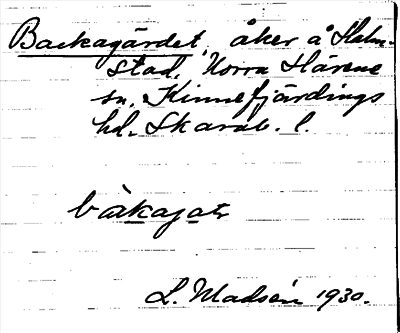 Backagärdet, åker å Halm-
stad, Norra Härene
sn, Kinnefjärdings
hd, Skarab. l.
bakagatı
L. Madsén 1930.